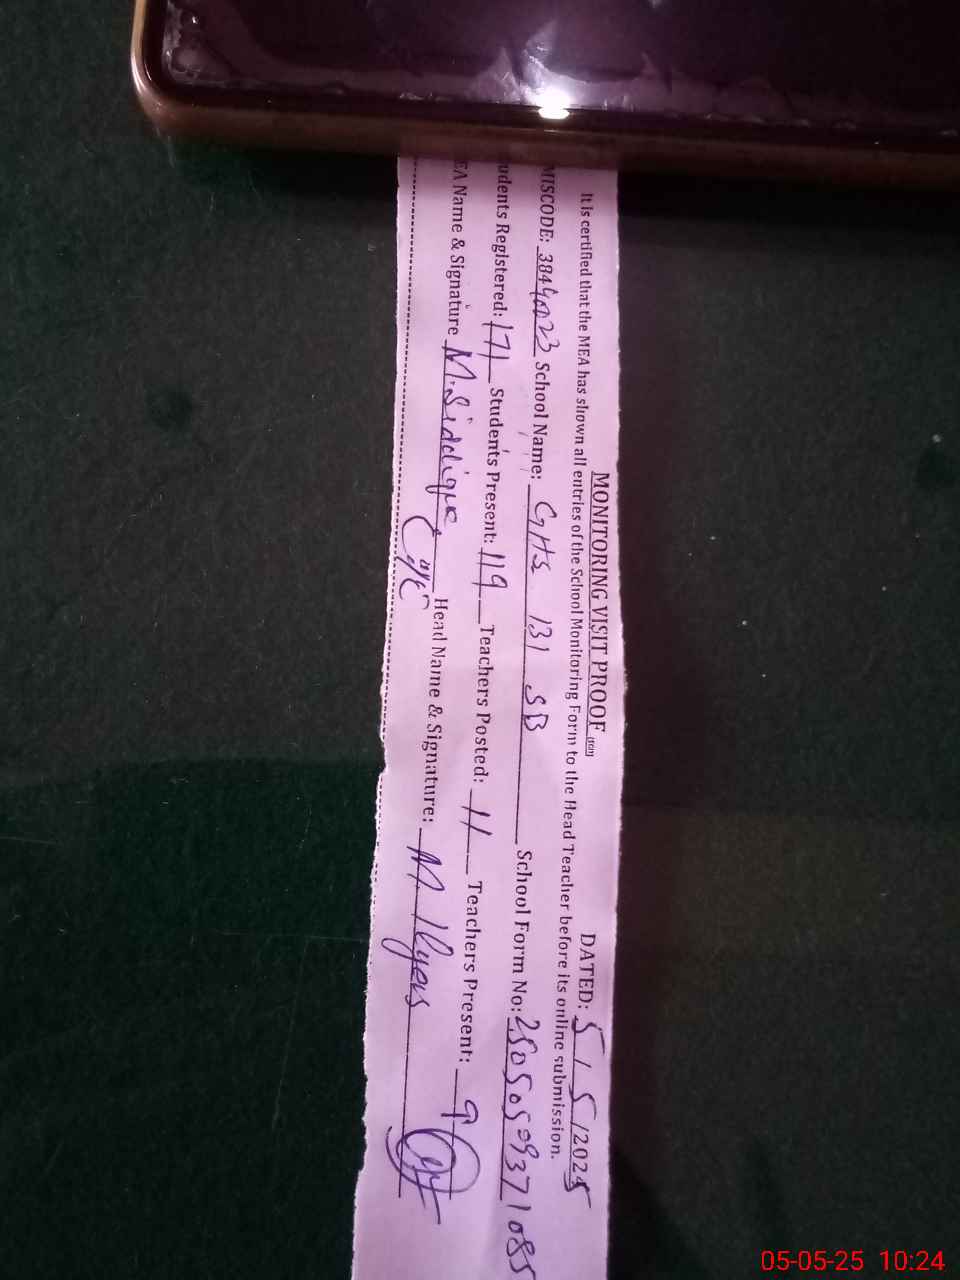 MONITORING VISIT PROOF
DATED: 5/5/2025
It is certified that the MEA has shown all entries of the School Monitoring Form to the Head Teacher before its online submission.
MISCODE: 38440023 School Name: GHS 131 SB School Form No: 25050509371085
udents Registered: 171 Students Present: 119 Teachers Posted: 11 Teachers Present: 9
EA Name & Signature M. Siddique Head Name & Signature: M Ilyas
05-05-25 10:24